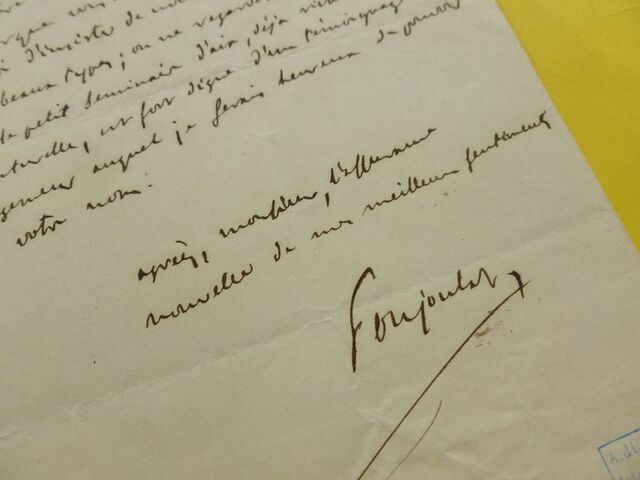 d'insister de
beaux types; on ne regarde
petit Séminaire d'aix, déjà
naturelle, est fort digne d'un témoignage
auquel je serais heureux de pouvoir
votre nom.
agréez, monsieur, l'assurance
nouvelle de mes meilleurs sentiments
Poujoulat
A.JU